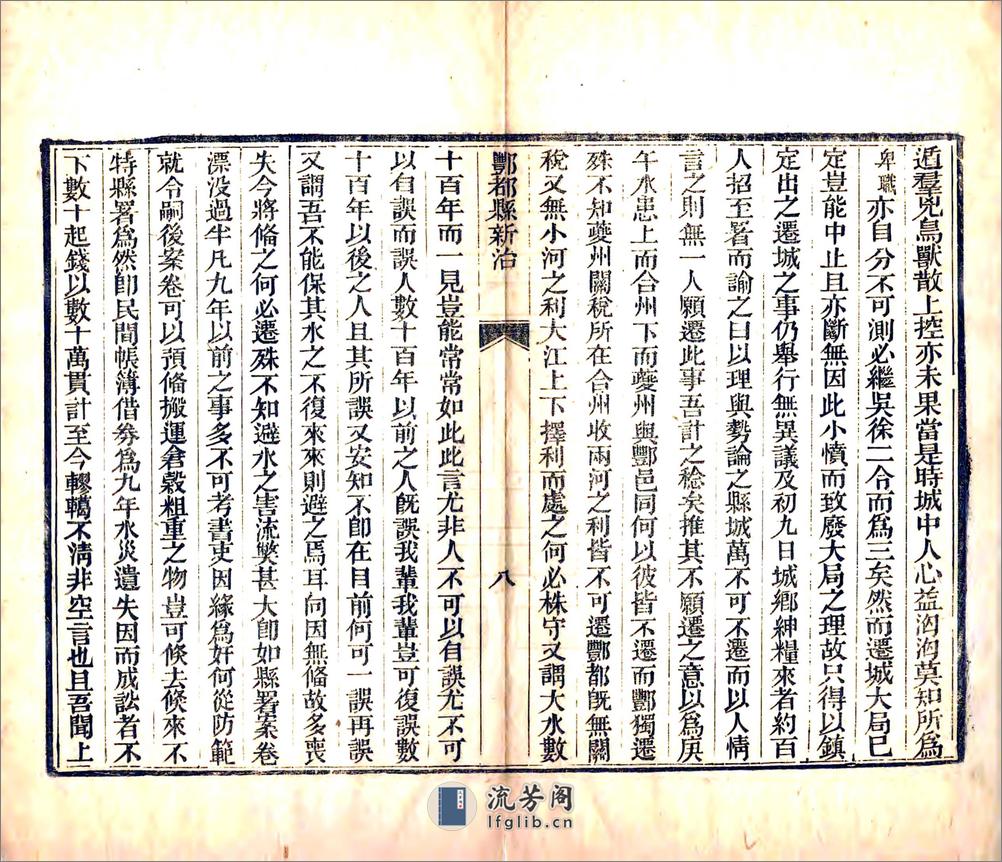 遁羣兇鳥獸散上控亦未果當是時城中人心益洶洶莫知所爲
卑職亦自分不可測必繼吳徐二令而爲三矣然而遷城大局已
定豈能中止且亦斷無因此小憤而致廢大局之理故只得以鎮
定出之遷城之事仍舉行無異議及初九日城鄉紳糧來者約百
人招至署而諭之曰以理與勢論之縣城萬不可不遷而以人情
言之則無一人願遷此事吾計之稔矣推其不願遷之意以爲庚
午水患上而合州下而夔州與酆邑同何以彼皆不遷而酆獨遷
殊不知夔州關稅所在合州收兩河之利皆不可遷酆都旣無關
稅又無小河之利大江上下擇利而處之何必株守又謂大水數
酆都縣新治
八
十百年而一見豈能常常如此此言尤非人不可以自誤尤不可
以自誤而誤人數十百年以前之人旣誤我輩我輩豈可復誤數
十百年以後之人且其所誤又安知不卽在目前何可一誤再誤
又謂吾不能保其水之不復來來則避之焉耳向因無備故多喪
失今將備之何必遷殊不知避水之害流獘甚大卽如縣署案卷
漂没過半凡九年以前之事多不可考書吏因緣爲奸何從防範
就令嗣後案卷可以預備搬運倉穀粗重之物豈可倐去倐來不
特縣署爲然卽民間帳簿借劵爲九年水災遺失因而成訟者不
下數十起錢以數十萬貫計至今轇轕不淸非空言也且吾聞上
流芳阁
lfglib.cn